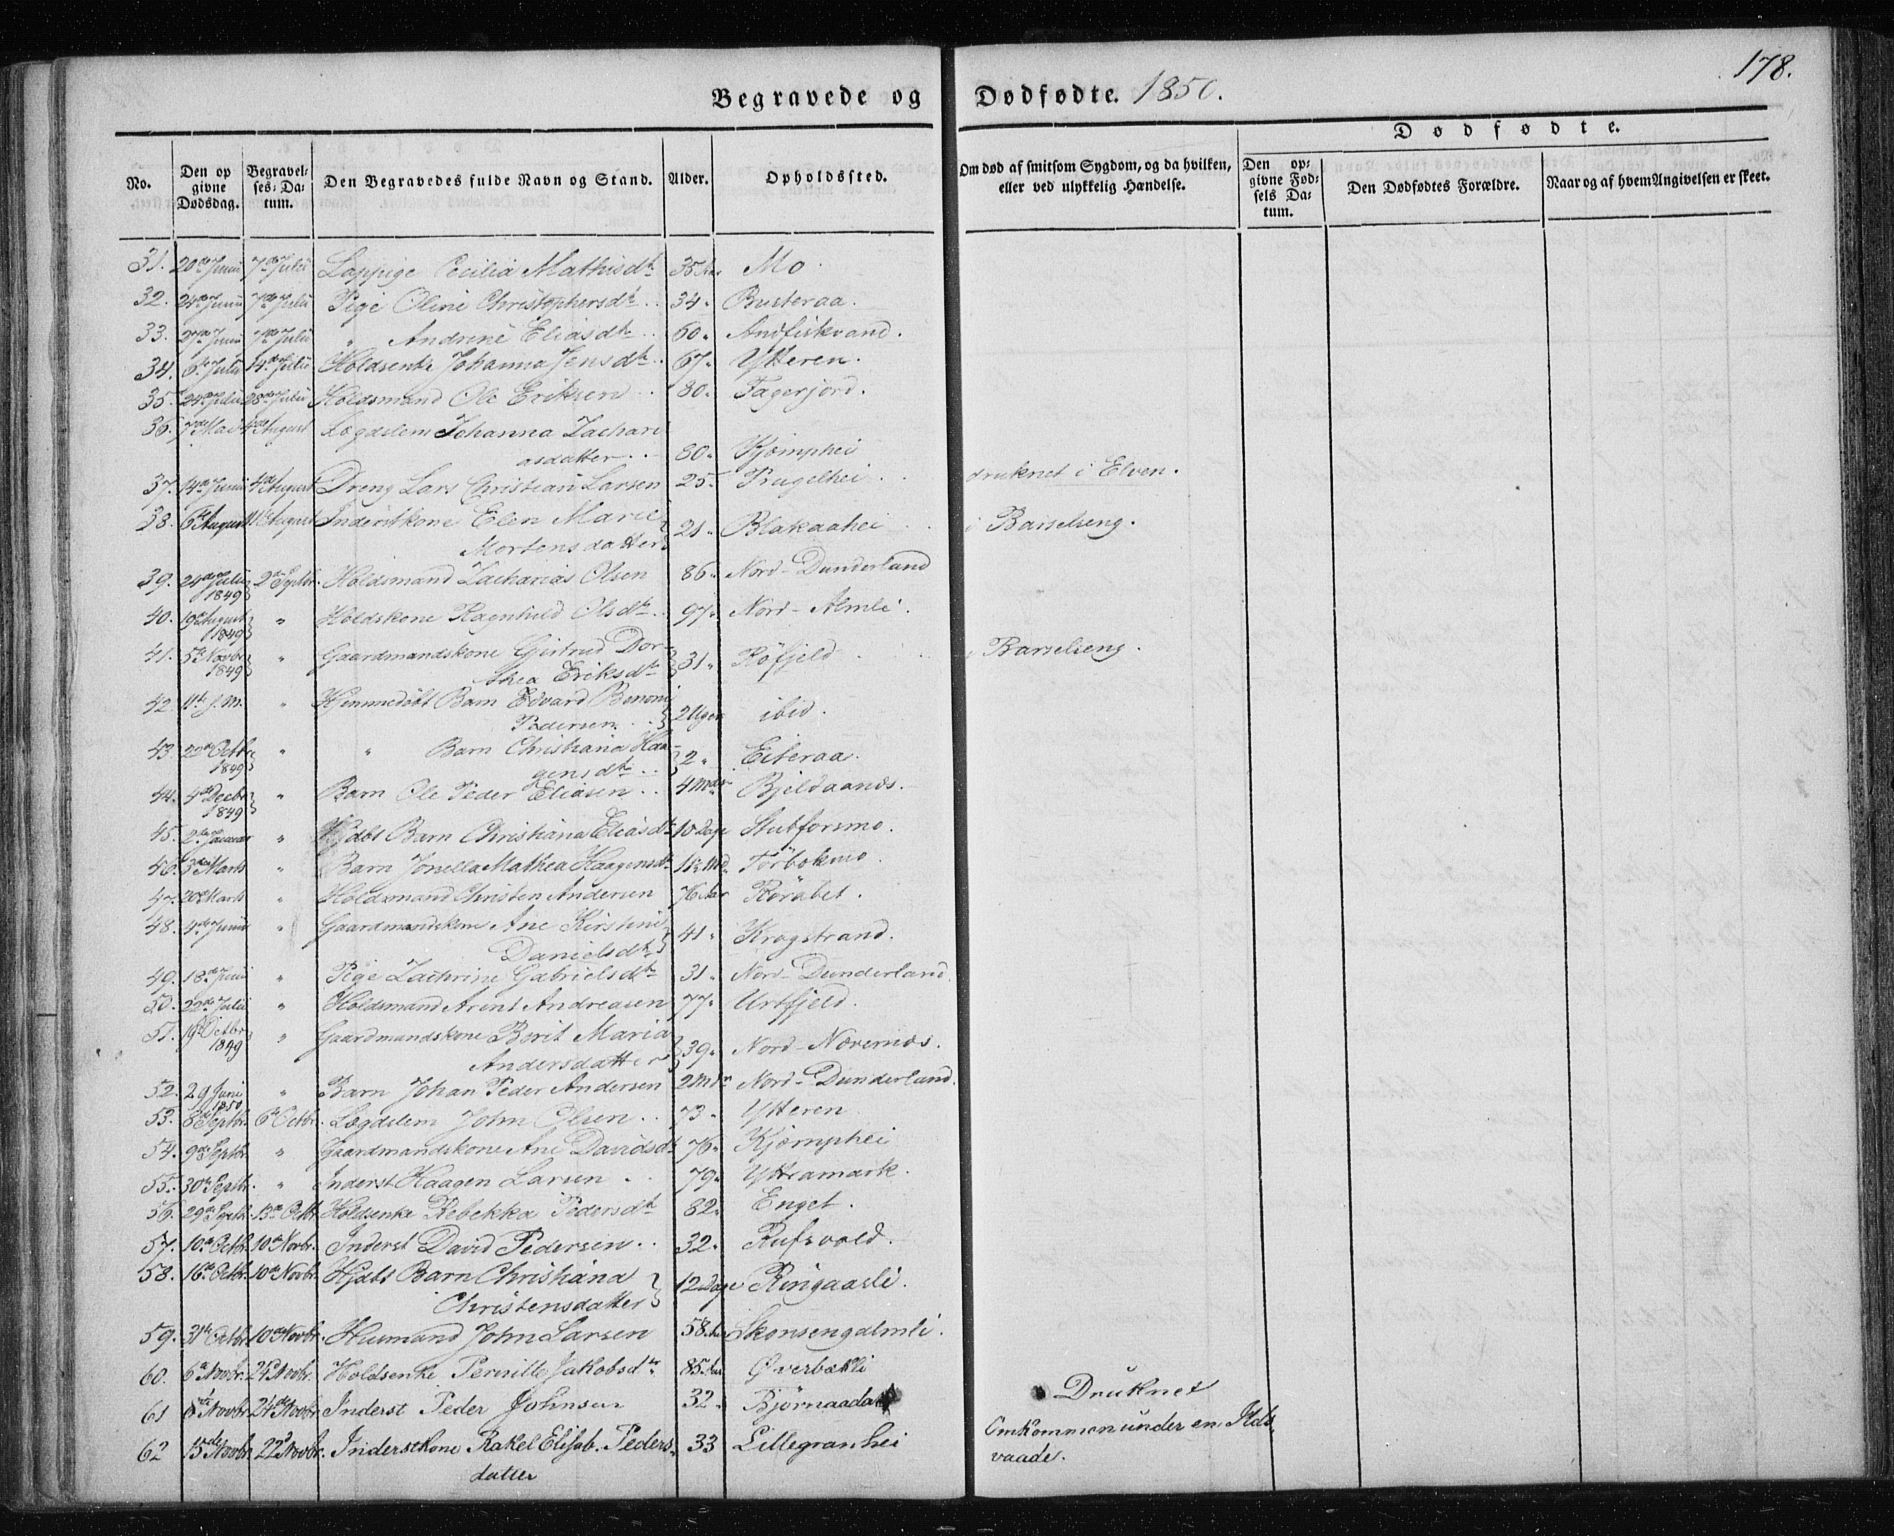 178.
Begravede og Dødfødte. 1850.
Dødfødte.
No.
Den opgivne Dødsdag.
Begravelses-Datum.
Den Begravedes fulde Navn og Stand.
Alder.
Opholdssted.
Om død af smitsom Sygdom, og da hvilken, eller ved ulykkelig Hændelse.
Den opgivne Fødsels Datum.
Den Dødfødtes Forældre.
Naar og af hvem Angivelsen er skeet.
31. 20de Junii 7de Julii Lappige Cecilia Mathisdtr 35 Aar Mo.
32. 24de Junii 7de Julii Pige Oline Christophersdtr 34. Busteraa.
33. 27de Junii 7de Julii " Andrine Eliasdtr 60. Andfiskvand.
34. 6te Julii 14de Julii Holdsenke Johanna Jensdtr 67. Ytteren.
35. 24de Julii 28de Julii Holdsmand Ole Eriksen 80. Fagerjord.
36. 7de Mai 4de August Lægdslem Johanna Zachari
asdatter 80. Kjæmphei
37. 14de Junii 4de August Dreng Lars Christian Larsen 25. Kugelhei druknet i Elven.
38. 6te August 11te August Inderstkone Elen Marie
Mortensdatter 21. Blakaahei i Barselseng.
39. 24de Julii 1849 2de Septbr. Holdsmand Zacharias Olsen 86. Nord-Dunderland
40. 19de August 1849 " Holdskone Ragnhild Olsdtr 97. Nord-Almli.
41. 5te Novbr 1849 " Gaardmandskone Gjertrud Dor-
thea Eriksdtr 31. Røfjeld i Barselseng.
42 11te s. M. " Hjemmedøbt Barn Edvard Benoni
Pedersen 2 Uger ibid.
43. 22de Octbr 1849 " " Barn Christiana Haa-
gensdtr 2 " Eiteraa.
44. 4de Decbr 1849 " Barn Ole Peder Eliasen 4 Mdr Bjeldaanæs.
45. 2den Januar " Hjdbt Barn Christiana Eliasdtr 10 Dage Stubforsmo.
46. 3die Marts " Barn Jonella Mathea Haagensdtr 1½ Md. Førbekmo.
47. 20de Marts " Holdsmand Christen Andersen 76 Aar Røråbet.
48. 4de Junii " Gaardmandskone Ane Kirstine
Danielsdtr 41. Krogstrand.
49. 18de Junii " Pige Zachrine Gabrielsdtr 31. Nord-Dunderland.
50. 22de Julii " Holdsmand Arent Andreasen 77. Urtfjeld.
51. 19de Octbr 1849 " Gaardmandskone Berit Maria
Andersdatter 39. Nord-Nævernæs.
52. 29 Juni 1850 " Barn Johan Peder Andersen 2 Mdr Nord-Dunderland.
53. 8de Septbr. 6te Octbr. Lægdslem John Olsen 73. Ytteren
54. 9de Septbr. " Gaardmandskone Ane Davidsdtr 76. Kjæmphei
55. 30te Septbr. " Inderst Haagen Larsen 79. Yttramark.
56. 29de Septbr. 13de Octbr Holdsenke Rebekka Pedersdtr 82. Enget.
57. 10de Octbr. 10de Novbr. Inderst David Pedersen 32. Rufsvold.
58. 16de Octbr. 10de Novbr. Hjdbt Barn Christiana
Christensdatter 12 Dage Ringaasli.
59. 31te Octbr. 10de Novbr. Huusmand John Larsen 58. Aar Skonsengalmli.
60. 6te Novbr. 24de Novbr. Holdsenke Pernille Jakobsdtr 85. Aar Øverbækli
61 8de Novbr 24de Novbr. Inderst Peder Johnsen 32. Bjørnaadal Druknet
62 15de Novbr. 22de Novbr. Inderstkone Rakel Elisab. Peders-
datter 33 Lillegranhei Omkommen under en Ilds-
vaade.